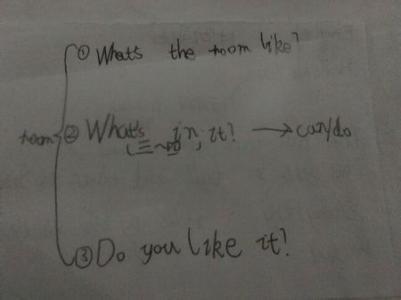 ① What's the room like?
room ② What's in it? → can/do
(三~四)
③ Do you like it?